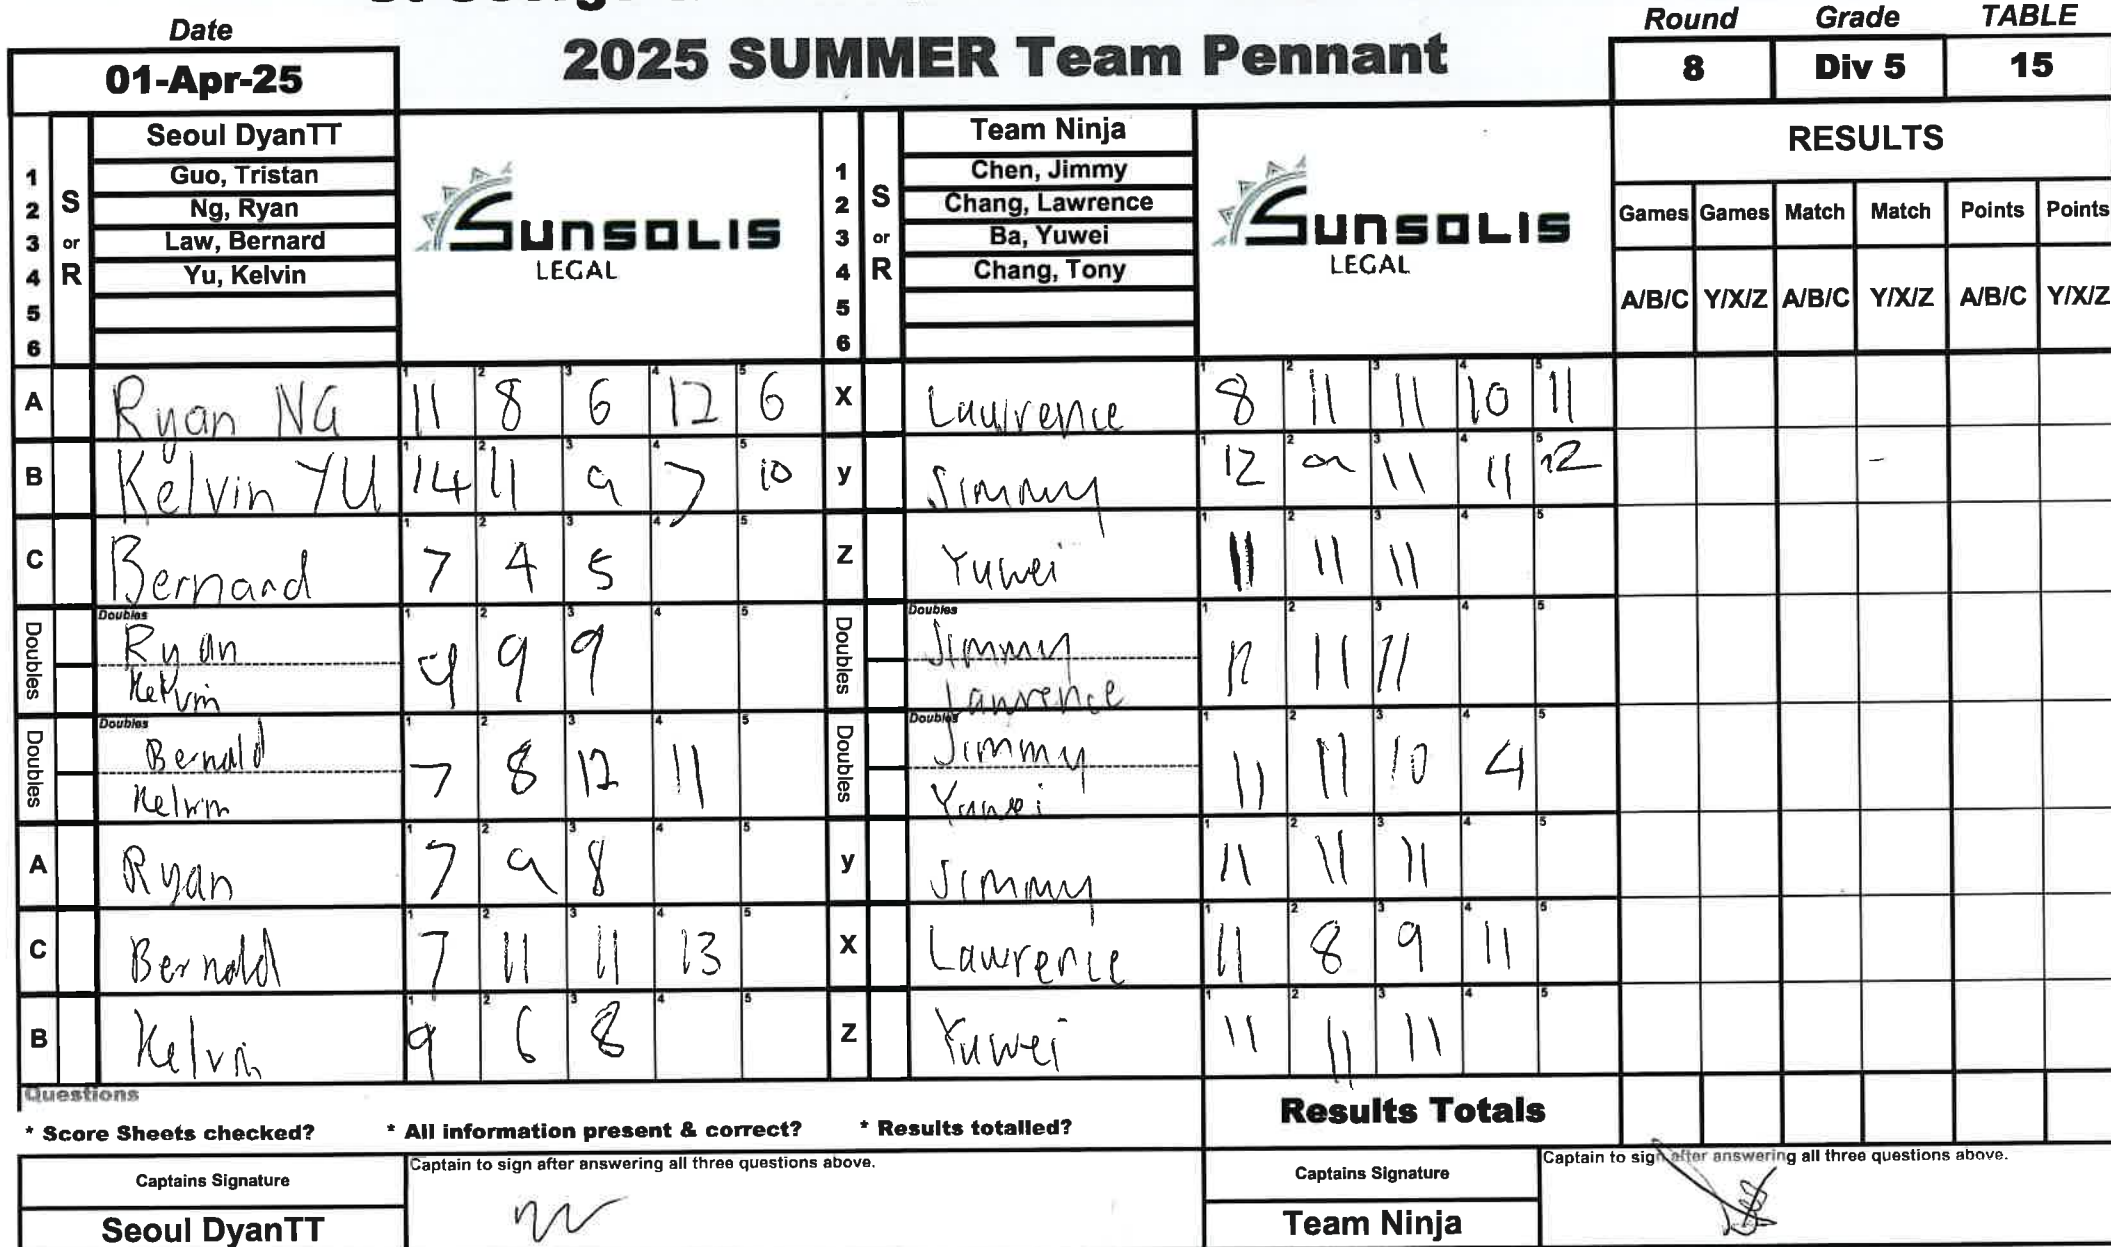 Date
01-Apr-25
2025 SUMMER Team Pennant
Round Grade TABLE
8 Div 5 15
1 2 3 4 5 6
S or R
Seoul DyanTT
Guo, Tristan
Ng, Ryan
Law, Bernard
Yu, Kelvin
SUNSOLIS
LEGAL
1 2 3 4 5 6
S or R
Team Ninja
Chen, Jimmy
Chang, Lawrence
Ba, Yuwei
Chang, Tony
SUNSOLIS
LEGAL
RESULTS
Games Games Match Match Points Points
A/B/C Y/X/Z A/B/C Y/X/Z A/B/C Y/X/Z
A Ryan NG 1 11 2 8 3 6 4 12 5 6 X Lawrence 1 8 2 11 3 11 4 10 5 11
B Kelvin YU 1 14 2 11 3 9 4 7 5 10 y Jimmy 1 12 2 9 3 11 4 11 5 12 -
C Bernard 1 7 2 4 3 5 4 5 Z Yuwei 1 11 2 11 3 11 4 5
Doubles Doubles Ryan Kelvin 1 9 2 9 3 9 4 5 Doubles Doubles Jimmy Lawrence 1 2 11 3 11 4 5
Doubles Doubles Bernald Kelvin 1 7 2 8 3 12 4 11 5 Doubles Doubles Jimmy Yuwei 1 11 2 11 3 10 4 4 5
A Ryan 1 7 2 9 3 8 4 5 y Jimmy 1 11 2 11 3 11 4 5
C Bernald 1 7 2 11 3 11 4 13 5 X Lawrence 1 11 2 8 3 9 4 11 5
B Kelvin 1 9 2 6 3 8 4 5 Z Yuwei 1 11 2 11 3 11 4 5
Questions
* Score Sheets checked? * All information present & correct? * Results totalled?
Results Totals
Captains Signature
Captain to sign after answering all three questions above.
Captains Signature
Captain to sign after answering all three questions above.
Seoul DyanTT
Team Ninja